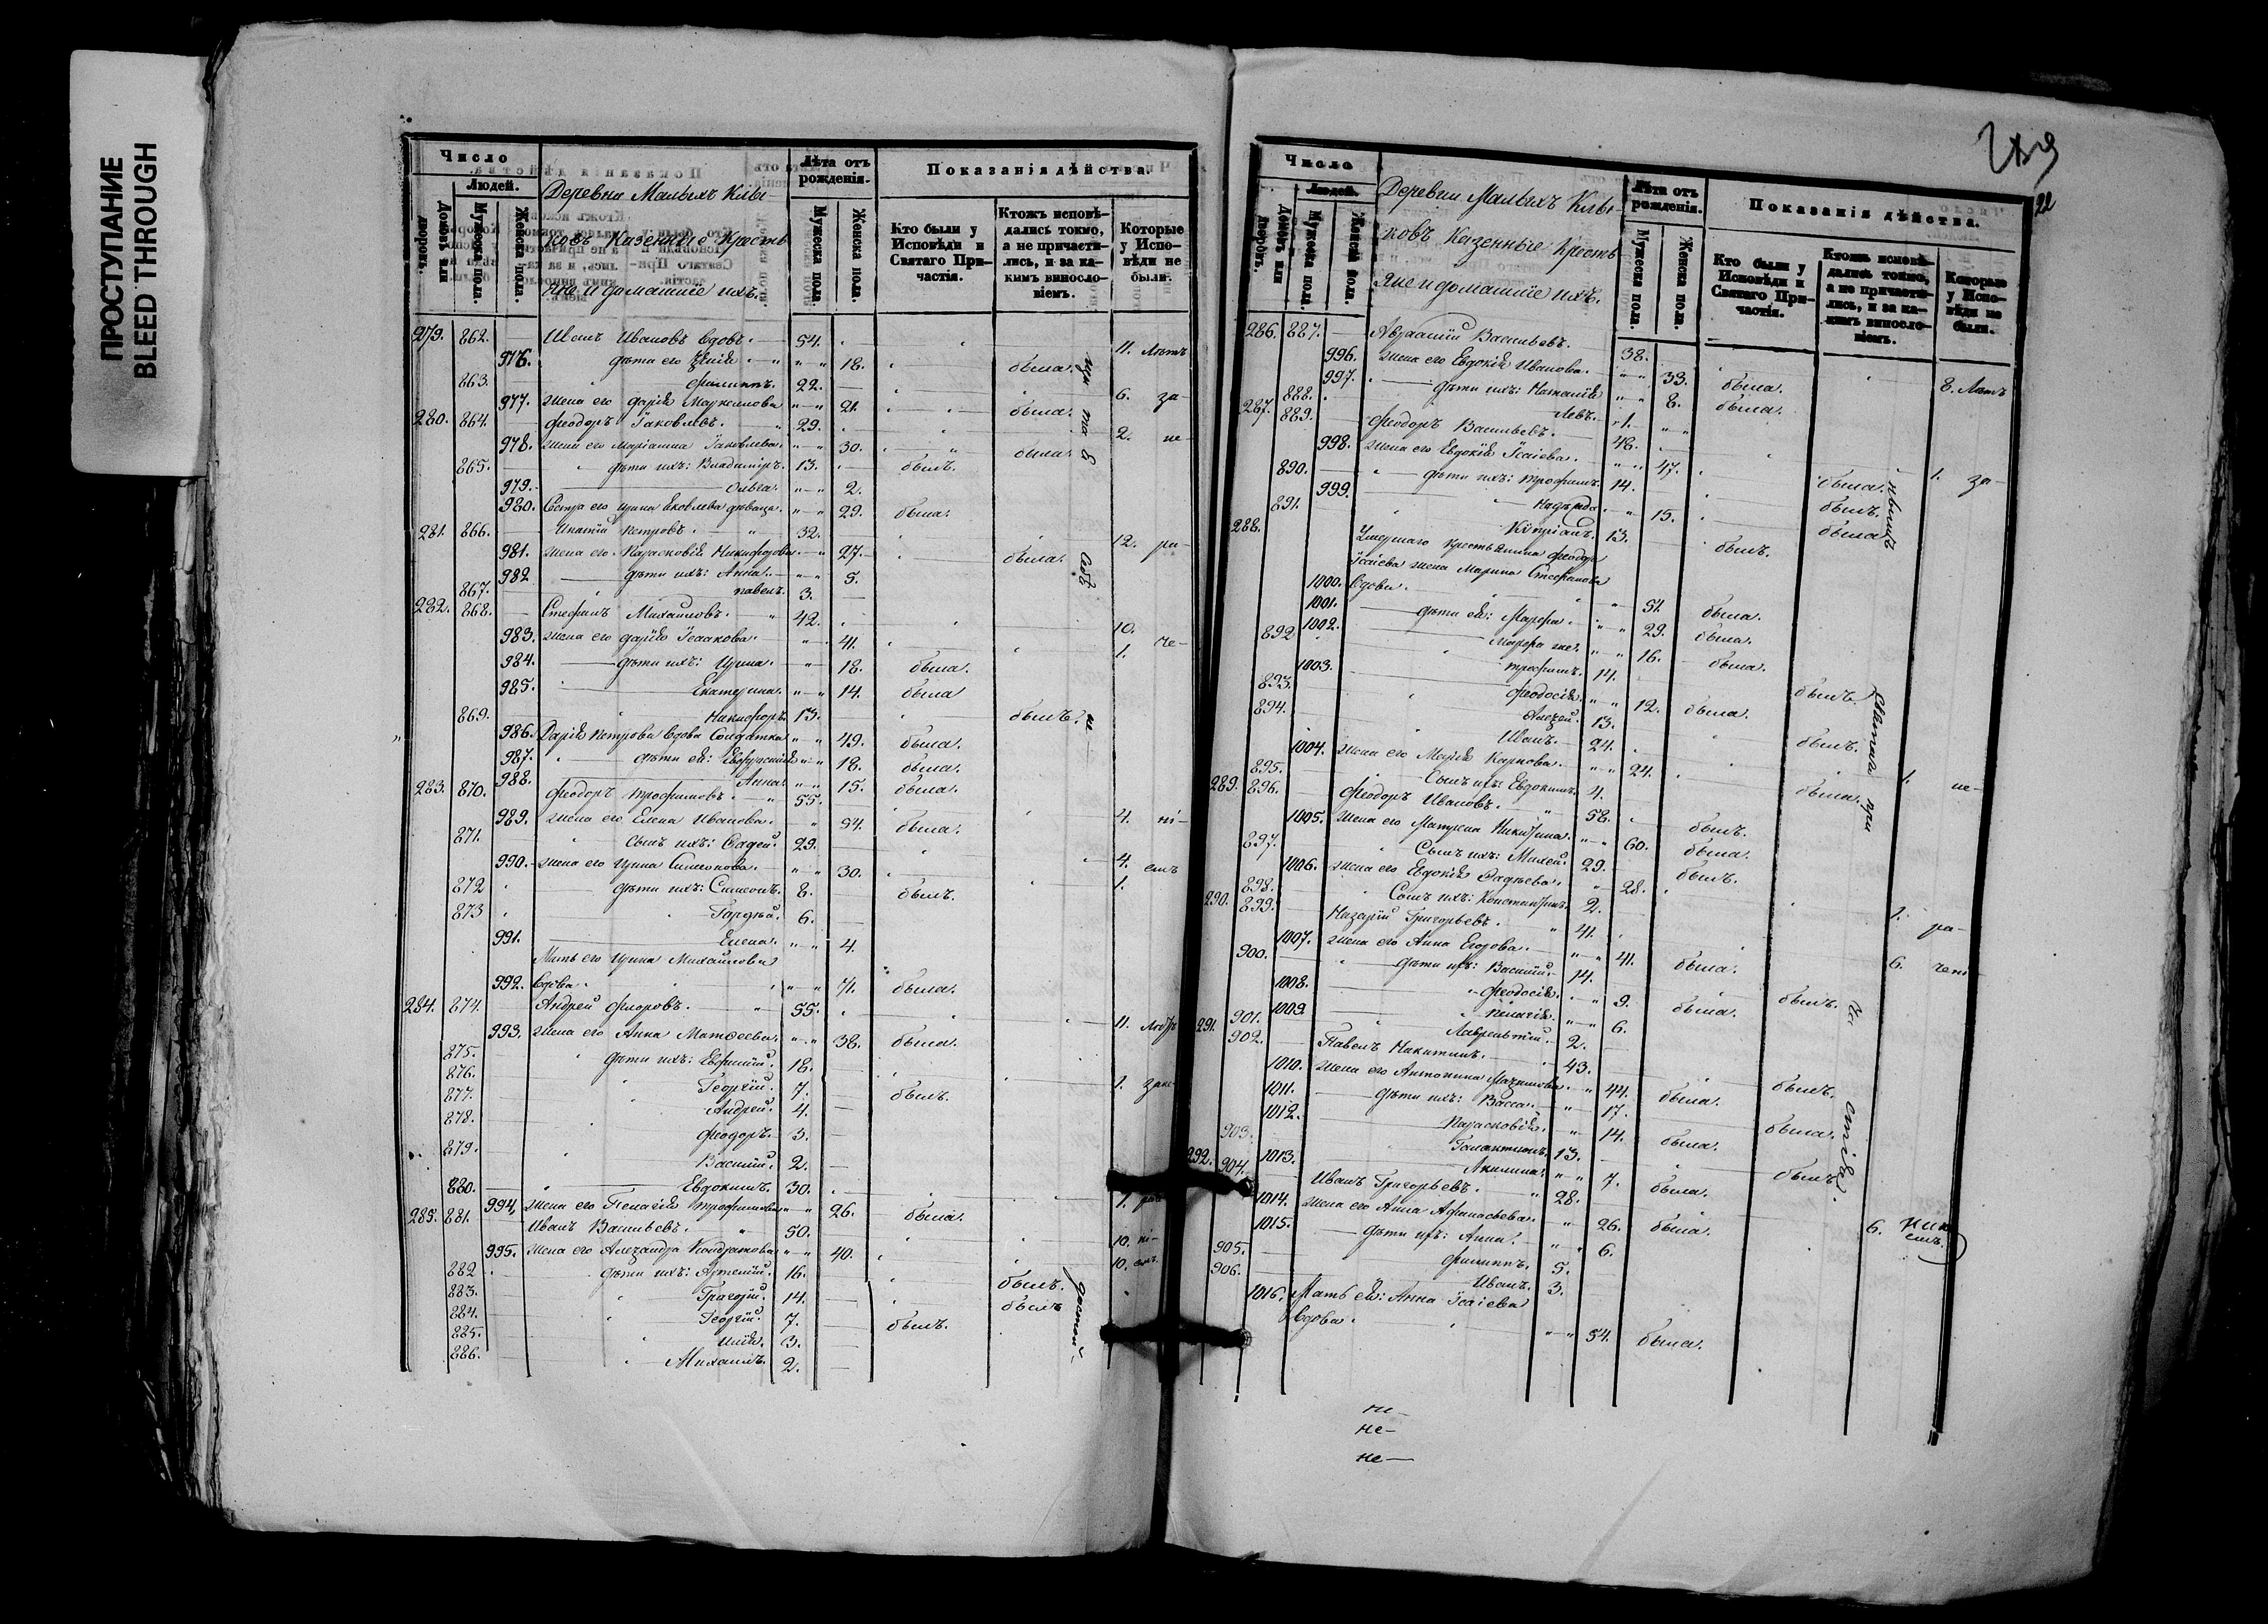 ПРОСТУПАНИЕ
BLEED THROUGH
Число
Людей.
Домовъ или дворовъ.
Мужеска пола.
Женска пола.
Деревни Малыхъ
Казенные Кресть
яне и домашніе ихъ.
Лѣта отъ рожденія.
Мужеска пола.
Женска пола.
Показанія дѣйства.
Кто были у Исповѣди и Святаго Причастія.
Ктожъ исповѣдались токмо, а не причастились, и за какимъ винословіемъ.
Которые у Исповѣди не были.
279. 862. Иванъ Ивановъ вдовъ. 54. 11. Лѣтъ
976. дѣти его 18. была.
863. Филиппъ. 22. 6. за-
977. жена его Дарія Маркеллова 21. была.
280. 864. Феодоръ Іаковлевъ. 29. 2. не-
978. жена его Маріамна Іаковлева. 30. была.
865. дѣти ихъ: Владиміръ. 13. былъ.
979. Ольга. 2.
980. Сестра его Ирина Яковлева дѣвица. 29. была.
281. 866. Игнатій Петровъ. 32. 12. ра-
981. жена его Парасковія Никифорова. 27. была.
982 дѣти ихъ: Анна. 5.
867. Павелъ. 3.
282. 868. Стефанъ Михаиловъ. 42. 10.
983. жена его Дарія Ісаакова. 41. 1. че-
984. дѣти ихъ: Ирина. 18. была.
985. Екатерина. 14. была
869. Никифоръ. 13. былъ.
986. Дарія Петрова вдова Солдатка 49. была.
987. дѣти ей: Евфросинія 18. была.
988. Анна. 15. была.
283. 870. Феодоръ Трофимовъ. 55. 4. ні-
989. жена его Елена Иванова. 54. была.
871. Сынъ ихъ: Фадей. 29. 4.
990. жена его Ирина Симеонова. 30. 1. емъ
872 дѣти ихъ: Симеонъ. 8. былъ.
873 Гордѣй. 6.
991. Елена. 4.
Мать его Ирина Михаилова
992. вдова. 71. была.
284. 874. Андрей Флоровъ. 55. 11. Лѣтъ
993. жена его Анна Матѳеева. 38. была.
875. дѣти ихъ: Евфимій. 18.
876. Георгій. 7. былъ. 1.
877. Андрей. 4.
878. Феодоръ. 3.
879. Василій. 2.
880. Евдокимъ. 30. 1.
994. жена его Пелагія Трофимова 26. была.
285. 881. Иванъ Васильевъ. 50. 10. ні-
995. жена его Александра Кондратова 40. 10. емъ.
882 дѣти ихъ: Артемій. 16. былъ.
883. Григорій. 14. былъ
884. Георгій. 7. былъ.
885. Илія. 3.
886. Михаилъ. 2.
22
Число
Людей.
Домовъ или дворовъ.
Мужеска пола.
Женска пола.
Деревни Малыхъ
Казенные Кресть
яне и домашніе ихъ.
Лѣта отъ рожденія.
Мужеска пола.
Женска пола.
Показанія дѣйства.
Кто были у Исповѣди и Святаго Причастія.
Ктожъ исповѣдались токмо, а не причастились, и за какимъ винословіемъ.
Которые у Исповѣди не были.
286. 887. Авраамій Васильевъ. 38. 8. Лѣтъ
996. жена его Евдокія Иванова. 33. была.
997. дѣти ихъ: Наталія 8. была.
888. Левъ. 1.
287. 889. Феодоръ Васильевъ. 48. 1. за-
998. жена его Евдокія Ісаіева. 47. была.
890. дѣти ихъ: Трофимъ. 14. былъ.
999. Надежда. 15. была
891. Кипріанъ. 13. былъ.
288. Умершаго Крестьянина Феодора
Ісаіева жена Марина Стефанова
1000. вдова. 51. была.
1001. дѣти ей: Марфа. 29. была.
1002. Марфа же. 16. была.
892 Трофимъ. 14. былъ
1003. Феодосія. 12. была.
893. Алексей. 13. былъ.
894. Иванъ. 24. 1. не-
1004. жена его Марія Карпова. 24. была.
895. Сынъ ихъ: Евдокимъ. 4.
289. 896. Феодоръ Ивановъ. 58. былъ.
1005. жена его Матрена Никитина. 60. была.
897. Сынъ ихъ: Михей. 29. былъ.
1006. жена его Евдокія Фадѣева. 28. 1. ра-
898. Сынъ ихъ: Константинъ. 2.
290. 899. Назарій Григорьевъ. 41. 6. чені
1007. жена его Анна Егорова. 41. была.
900. дѣти ихъ: Василій. 14. былъ.
1008. Феодосія. 9. была.
1009. Пелагія. 6.
901. Лаврентій. 2.
291. 902. Павелъ Никитинъ. 43. былъ.
1010. жена его Антонина Максимова. 44. была.
1011. дѣти ихъ: Васса. 17. была.
1012. Парасковія. 14. была.
903. Галактіонъ. 13. былъ
1013. Акилина. 7. была.
292. 904. Иванъ Григорьевъ. 28. 6.
1014. жена его Анна Афанасьева. 26. была.
1015. дѣти ихъ: Анна. 6.
905. Филиппъ. 5.
906. Иванъ. 3.
1016. Мать ей: Анна Ісаіева
вдова. 54. была.
не-
не-
не-